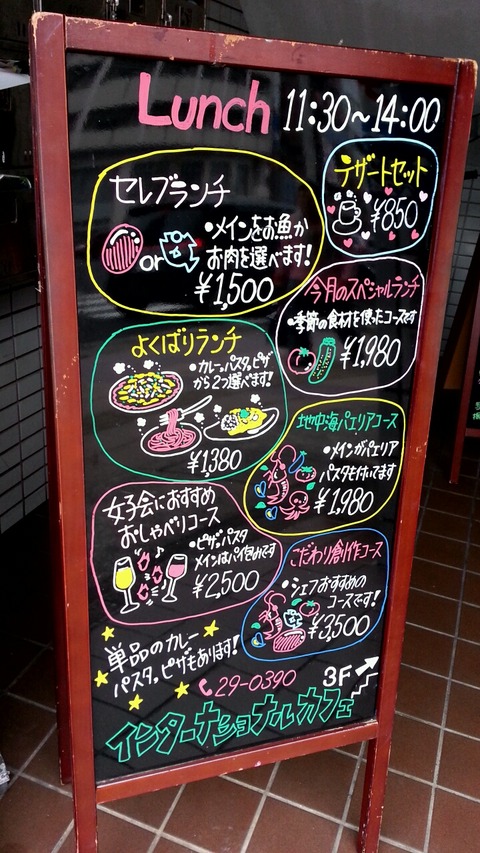 Lunch 11:30~14:00
セレブランチ
・メインをお魚か
お肉を選べます!
or
¥1,500
デザートセット
¥850
今月のスペシャルランチ
・季節の食材を使ったコースです
¥1,980
よくばりランチ
・カレー、パスタ、ピザ
から2つ選べます!
¥1,380
地中海パエリアコース
・メインがパエリア
パスタも付いてます
¥1,980
女子会におすすめ
おしゃべりコース
・ピザ、パスタ
メインはパイ包みです
¥2,500
こだわり創作コース
・シェフおすすめの
コースです!
¥3,500
単品のカレー
パスタ、ピザもあります!
29-0390
3F
インターナショナルカフェ